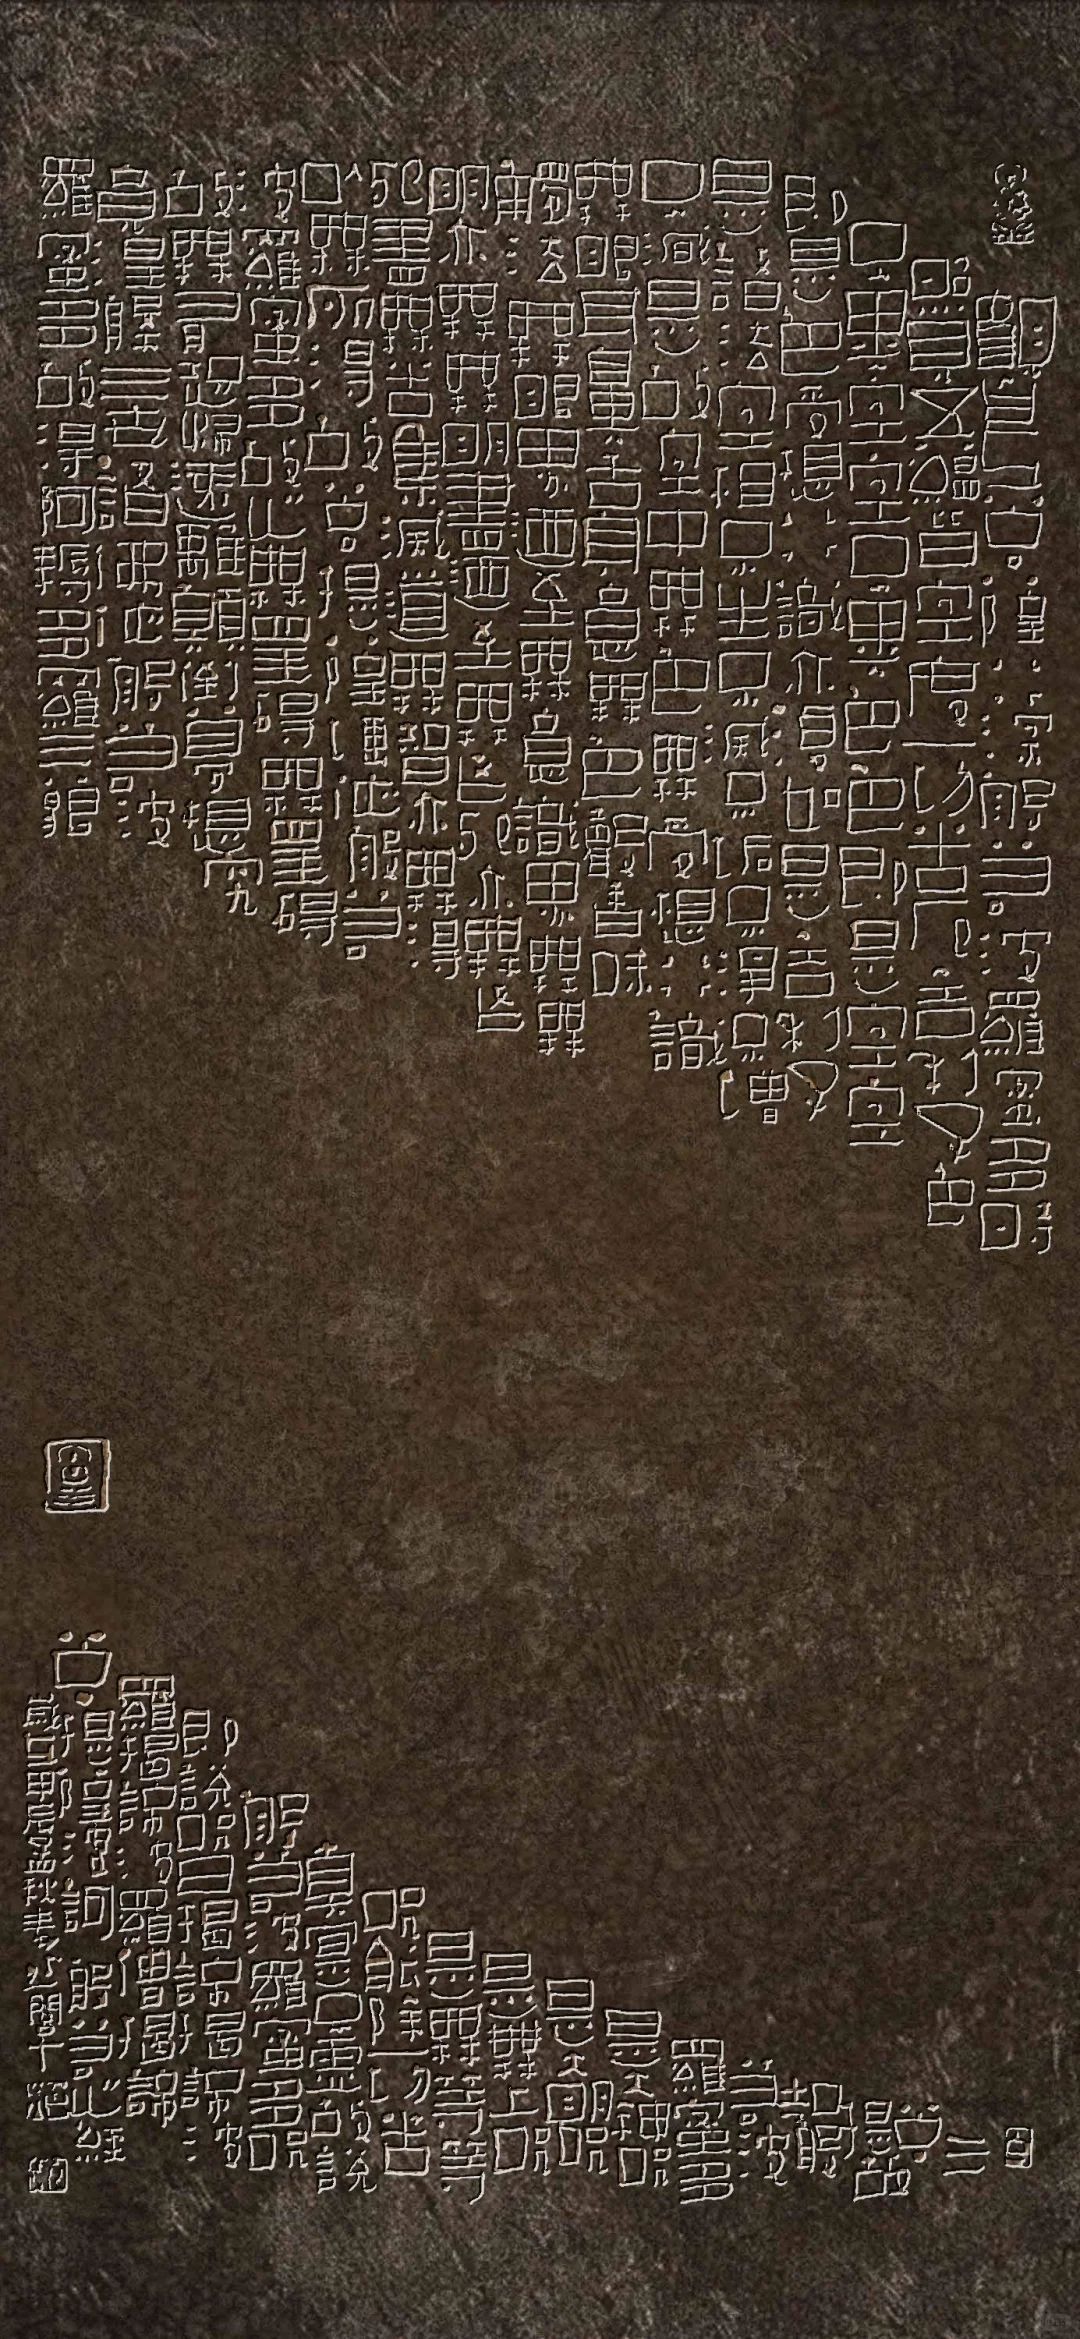 觀自在菩薩行深般若波羅蜜多時
照見五蘊皆空度一切苦厄舍利子色
不異空空不異色色即是空空
即是色受想行識亦復如是舍利子
是諸法空相不生不滅不垢不淨不增
不減是故空中無色無受想行識
無眼耳鼻舌身意無色聲香味
觸法無眼界迺至無意識界無無
明亦無無明盡迺至無老死亦無老
死盡無苦集滅道無智亦無得
以無所得故菩提薩埵依般若
波羅蜜多故心無罣礙無罣礙
故無有恐怖遠離顛倒夢想究
竟涅槃三世諸佛依般若波
羅蜜多故得阿耨多羅三藐
三
菩
提故
知般
若波
羅蜜多
是大神咒
是大明咒
是無上咒
是無等等
咒能除一切苦
真實不虛故說
般若波羅蜜多咒
即說咒曰揭諦揭諦波
羅揭諦波羅僧揭諦
菩提薩婆訶般若心經